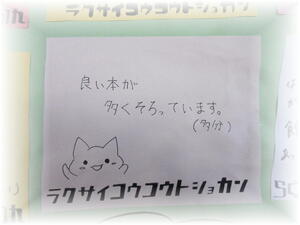 ラクサイコウコウトショカン
良い本が
多くそろっています。
(多分)
ラクサイコウコウトショカン